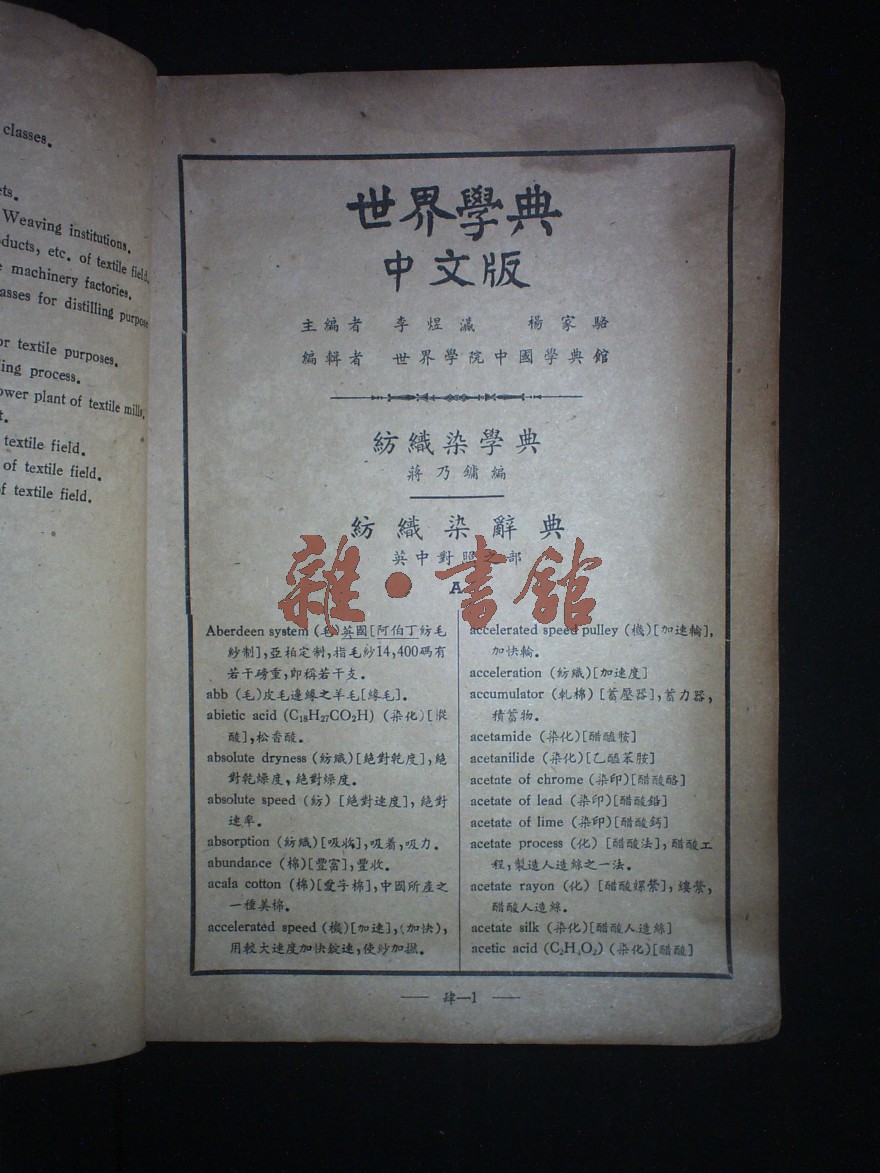 classes.
ets.
Weaving institutions.
ducts, etc. of textile field.
machinery factories.
asses for distilling purpose
or textile purposes.
ing process.
ower plant of textile mills.
t.
textile field.
of textile field.
f textile field.
世界學典
中文版
主編者 李煜瀛 楊家駱
編輯者 世界學院中國學典館
紡織染學典
蔣乃鏞編
紡織染辭典
英中對照之部
A
雜·書館
Aberdeen system (毛)英國[阿伯丁紡毛
紗制],亞柏定制,指毛紗14,400碼有
若干磅重,即稱若干支。
abb (毛)皮毛邊緣之羊毛[緣毛]。
abietic acid (C₁₈H₂₇CO₂H) (染化)[樅
酸],松香酸。
absolute dryness (紡織)[絕對乾度],絕
對乾燥度,絕對燥度。
absolute speed (紡) [絕對速度],絕對
速率。
absorption (紡織)[吸收],吸着,吸力。
abundance (棉)[豐富],豐收。
acala cotton (棉)[愛字棉],中國所產之
一種美棉。
accelerated speed (機)[加速],(加快),
用較大速度加快錠速,使紗加撚。
accelerated speed pulley (機)[加速輪],
加快輪。
acceleration (紡織)[加速度]
accumulator (軋棉)[蓄壓器],蓄力器,
積蓄物。
acetamide (染化)[醋醯胺]
acetanilide (染化)[乙醯苯胺]
acetate of chrome (染印)[醋酸鉻]
acetate of lead (染印)[醋酸鉛]
acetate of lime (染印)[醋酸鈣]
acetate process (化) [醋酸法],醋酸工
程,製造人造絲之一法。
acetate rayon (化) [醋酸嫘縈],縷縈,
醋酸人造絲。
acetate silk (染化)[醋酸人造絲]
acetic acid (C₂H₄O₂) (染化)[醋酸]
— 肆—1 —